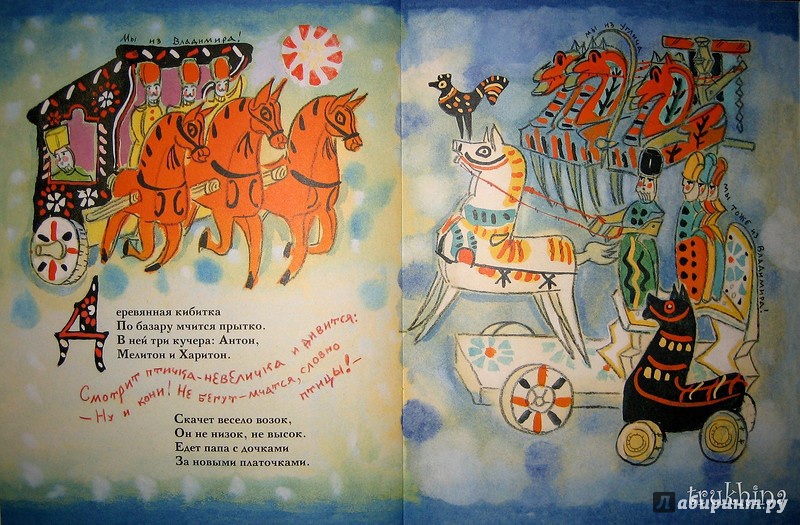 Мы из Владимира!
Деревянная кибитка
По базару мчится прытко.
В ней три кучера: Антон,
Мелитон и Харитон.
Смотрит птичка-невеличка и дивится:
— Ну и кони! Не бегут — мчатся, словно птицы! —
Скачет весело возок,
Он не низок, не высок.
Едет папа с дочками
За новыми платочками.
Мы из
Мы тоже из Владимира!
trukhina
Лабиринт.ру